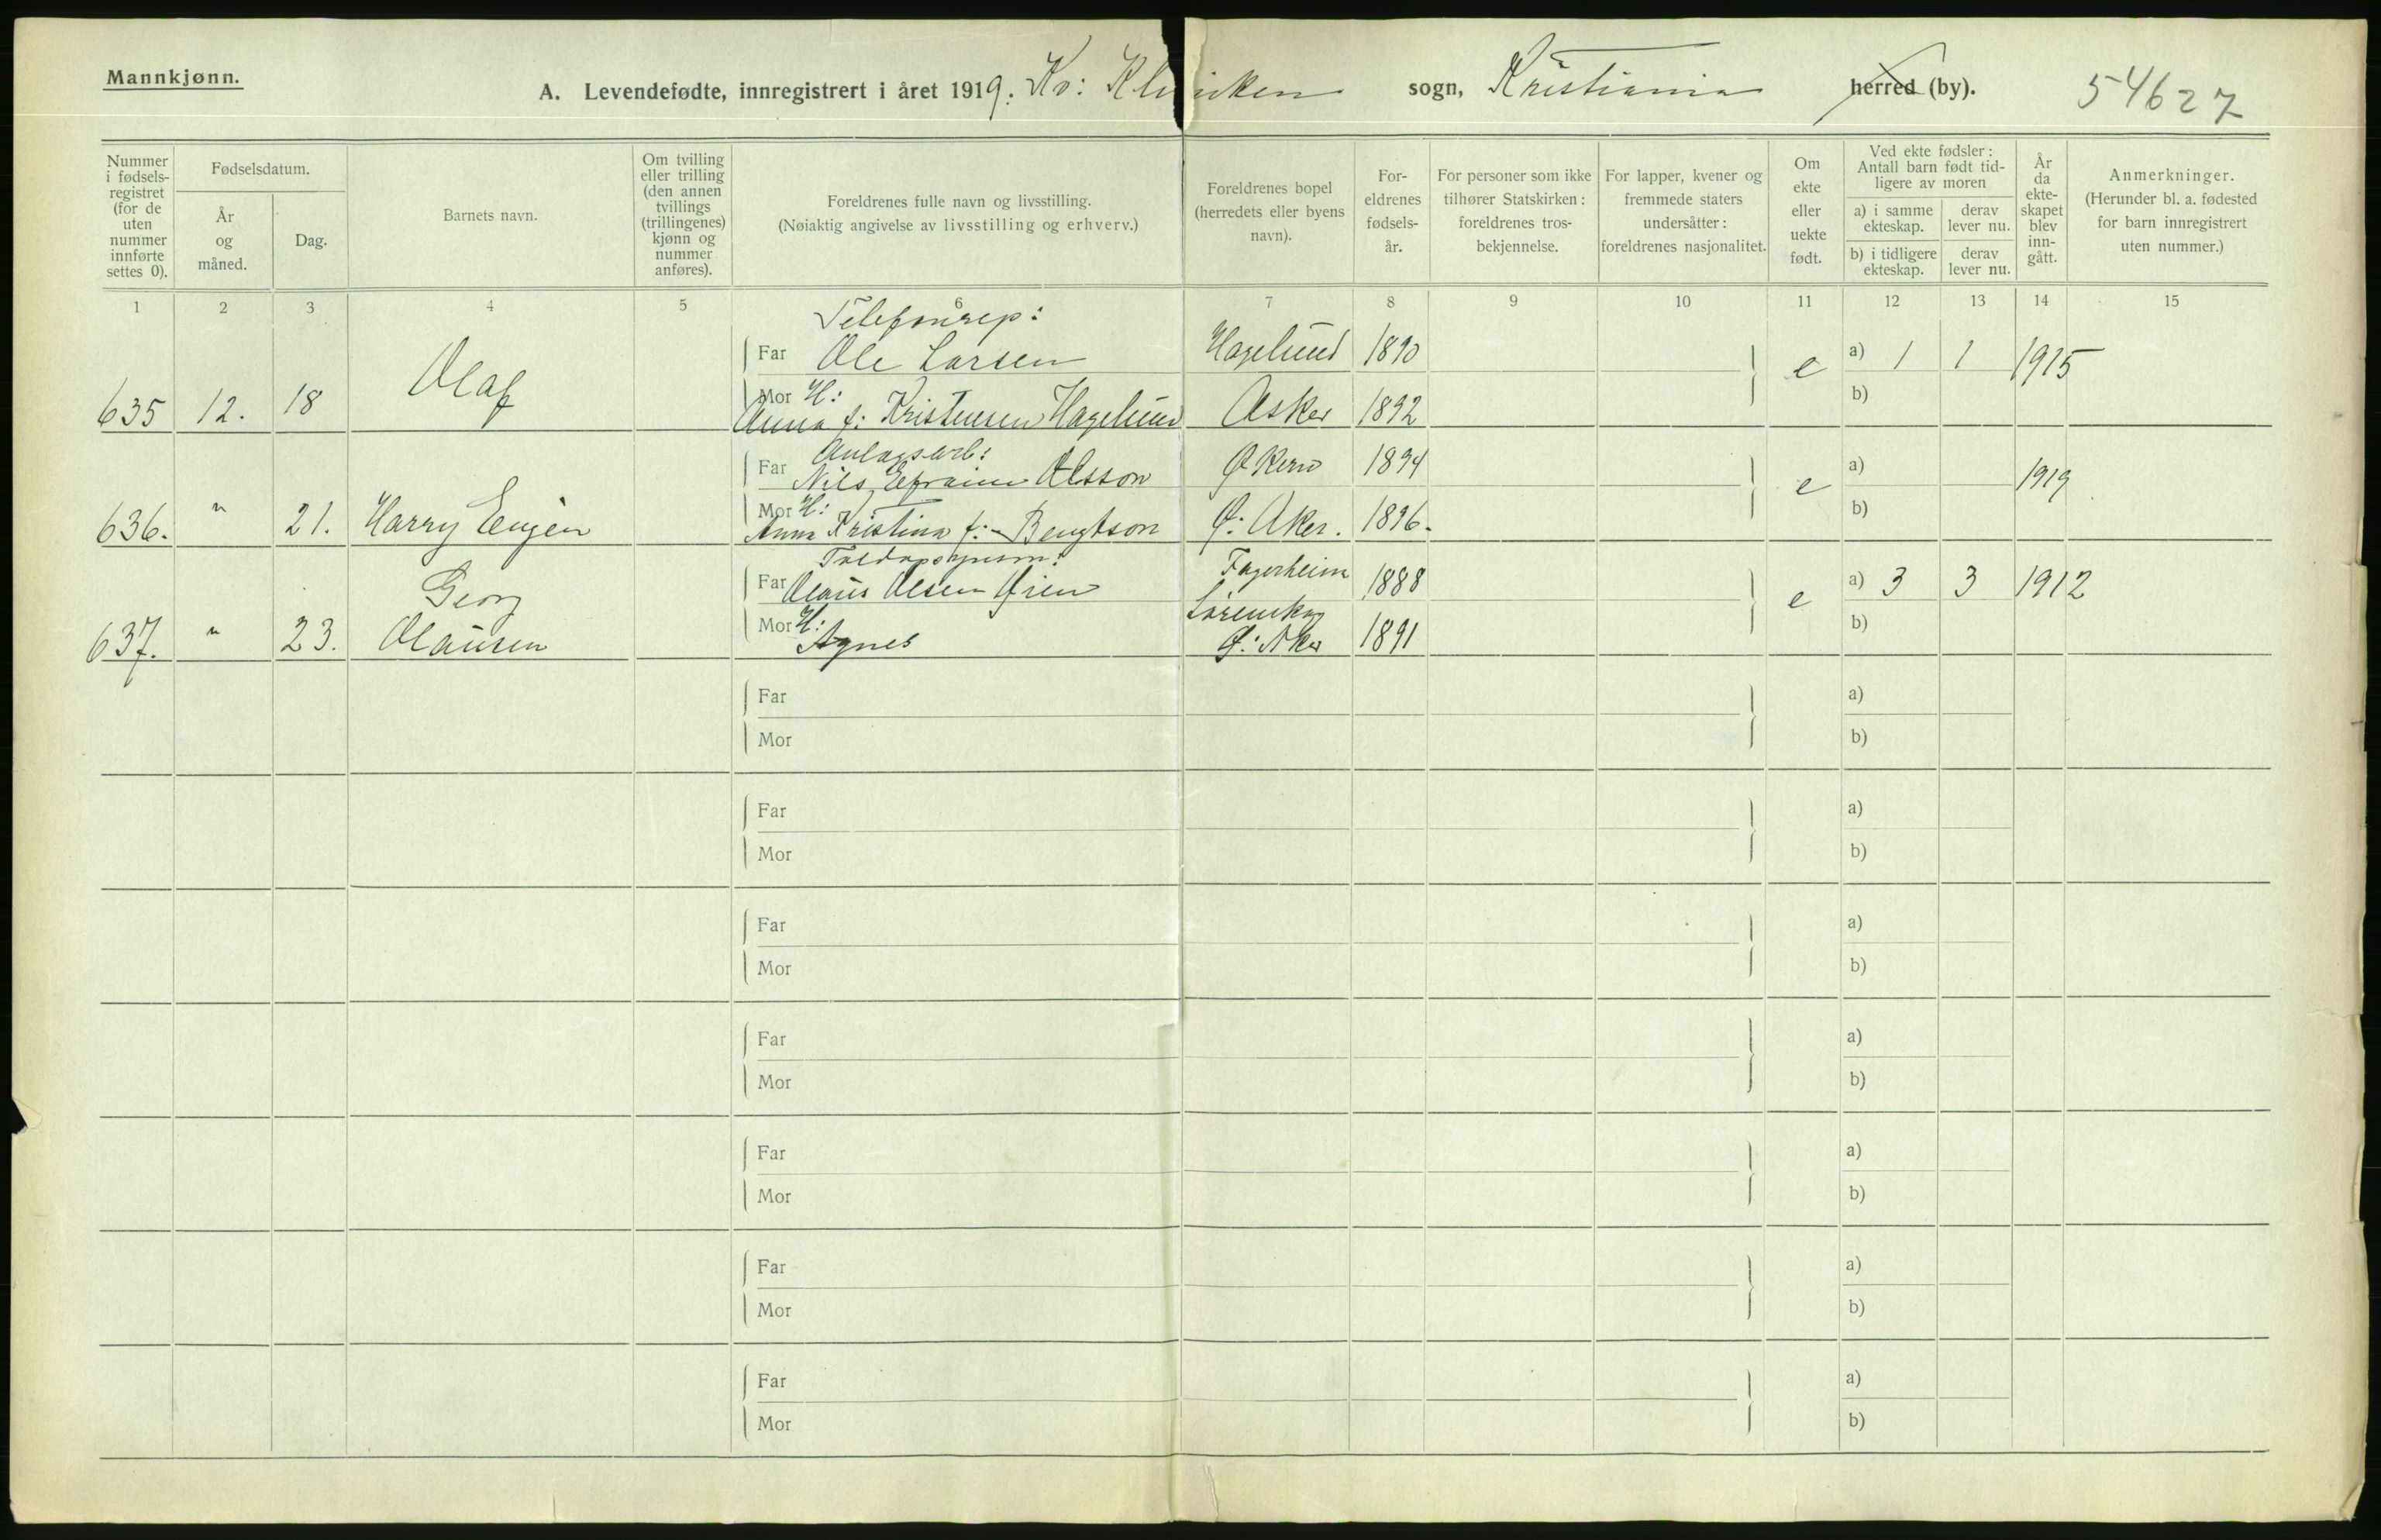 Mannkjønn.
A. Levendefødte, innregistrert i året 1919. Kv: Kliniken sogn, Kristiania herred (by). 54627
Nummer i fødselsregistret (for de uten nummer innførte settes 0).
Fødselsdatum.
År og måned.
Dag.
Barnets navn.
Om tvilling eller trilling (den annen tvillings (trillingenes) kjønn og nummer anføres).
Foreldrenes fulle navn og livsstilling.
(Nøiaktig angivelse av livsstilling og erhverv.)
Foreldrenes bopel (herredets eller byens navn).
Foreldrenes fødselsår.
For personer som ikke tilhører Statskirken: foreldrenes trosbekjennelse.
For lapper, kvener og fremmede staters undersåtter: foreldrenes nasjonalitet.
Om ekte eller uekte født.
Ved ekte fødsler: Antall barn født tidligere av moren
a) i samme ekteskap. derav lever nu.
b) i tidligere ekteskap. derav lever nu.
År da ekteskapet blev inngått.
Anmerkninger.
(Herunder bl. a. fødested for barn innregistrert uten nummer.)
1 2 3 4 5 6 7 8 9 10 11 12 13 14 15
Telefonrep:
635 12. 18 Olaf Far Ole Larsen Hagelund 1890 e a) 1 1 1915
Mor H: Anna f: Kristensen Hagelund Asker 1892 b)
Anlagsarb:
636. " 21. Harry Eugen Far Nils Efraim Olsson Økern 1894 e a) 1919
Mor H: Anna Kristina f: Bengtson Ø: Aker. 1896. b)
637. " 23. Georg Olausen Far Olaus Olsen Øien Fagerheim Lørenskog 1888 e a) 3 3 1912
Mor H: Agnes Ø: Aker 1891 b)
Far a)
Mor b)
Far a)
Mor b)
Far a)
Mor b)
Far a)
Mor b)
Far a)
Mor b)
Far a)
Mor b)
Far a)
Mor b)